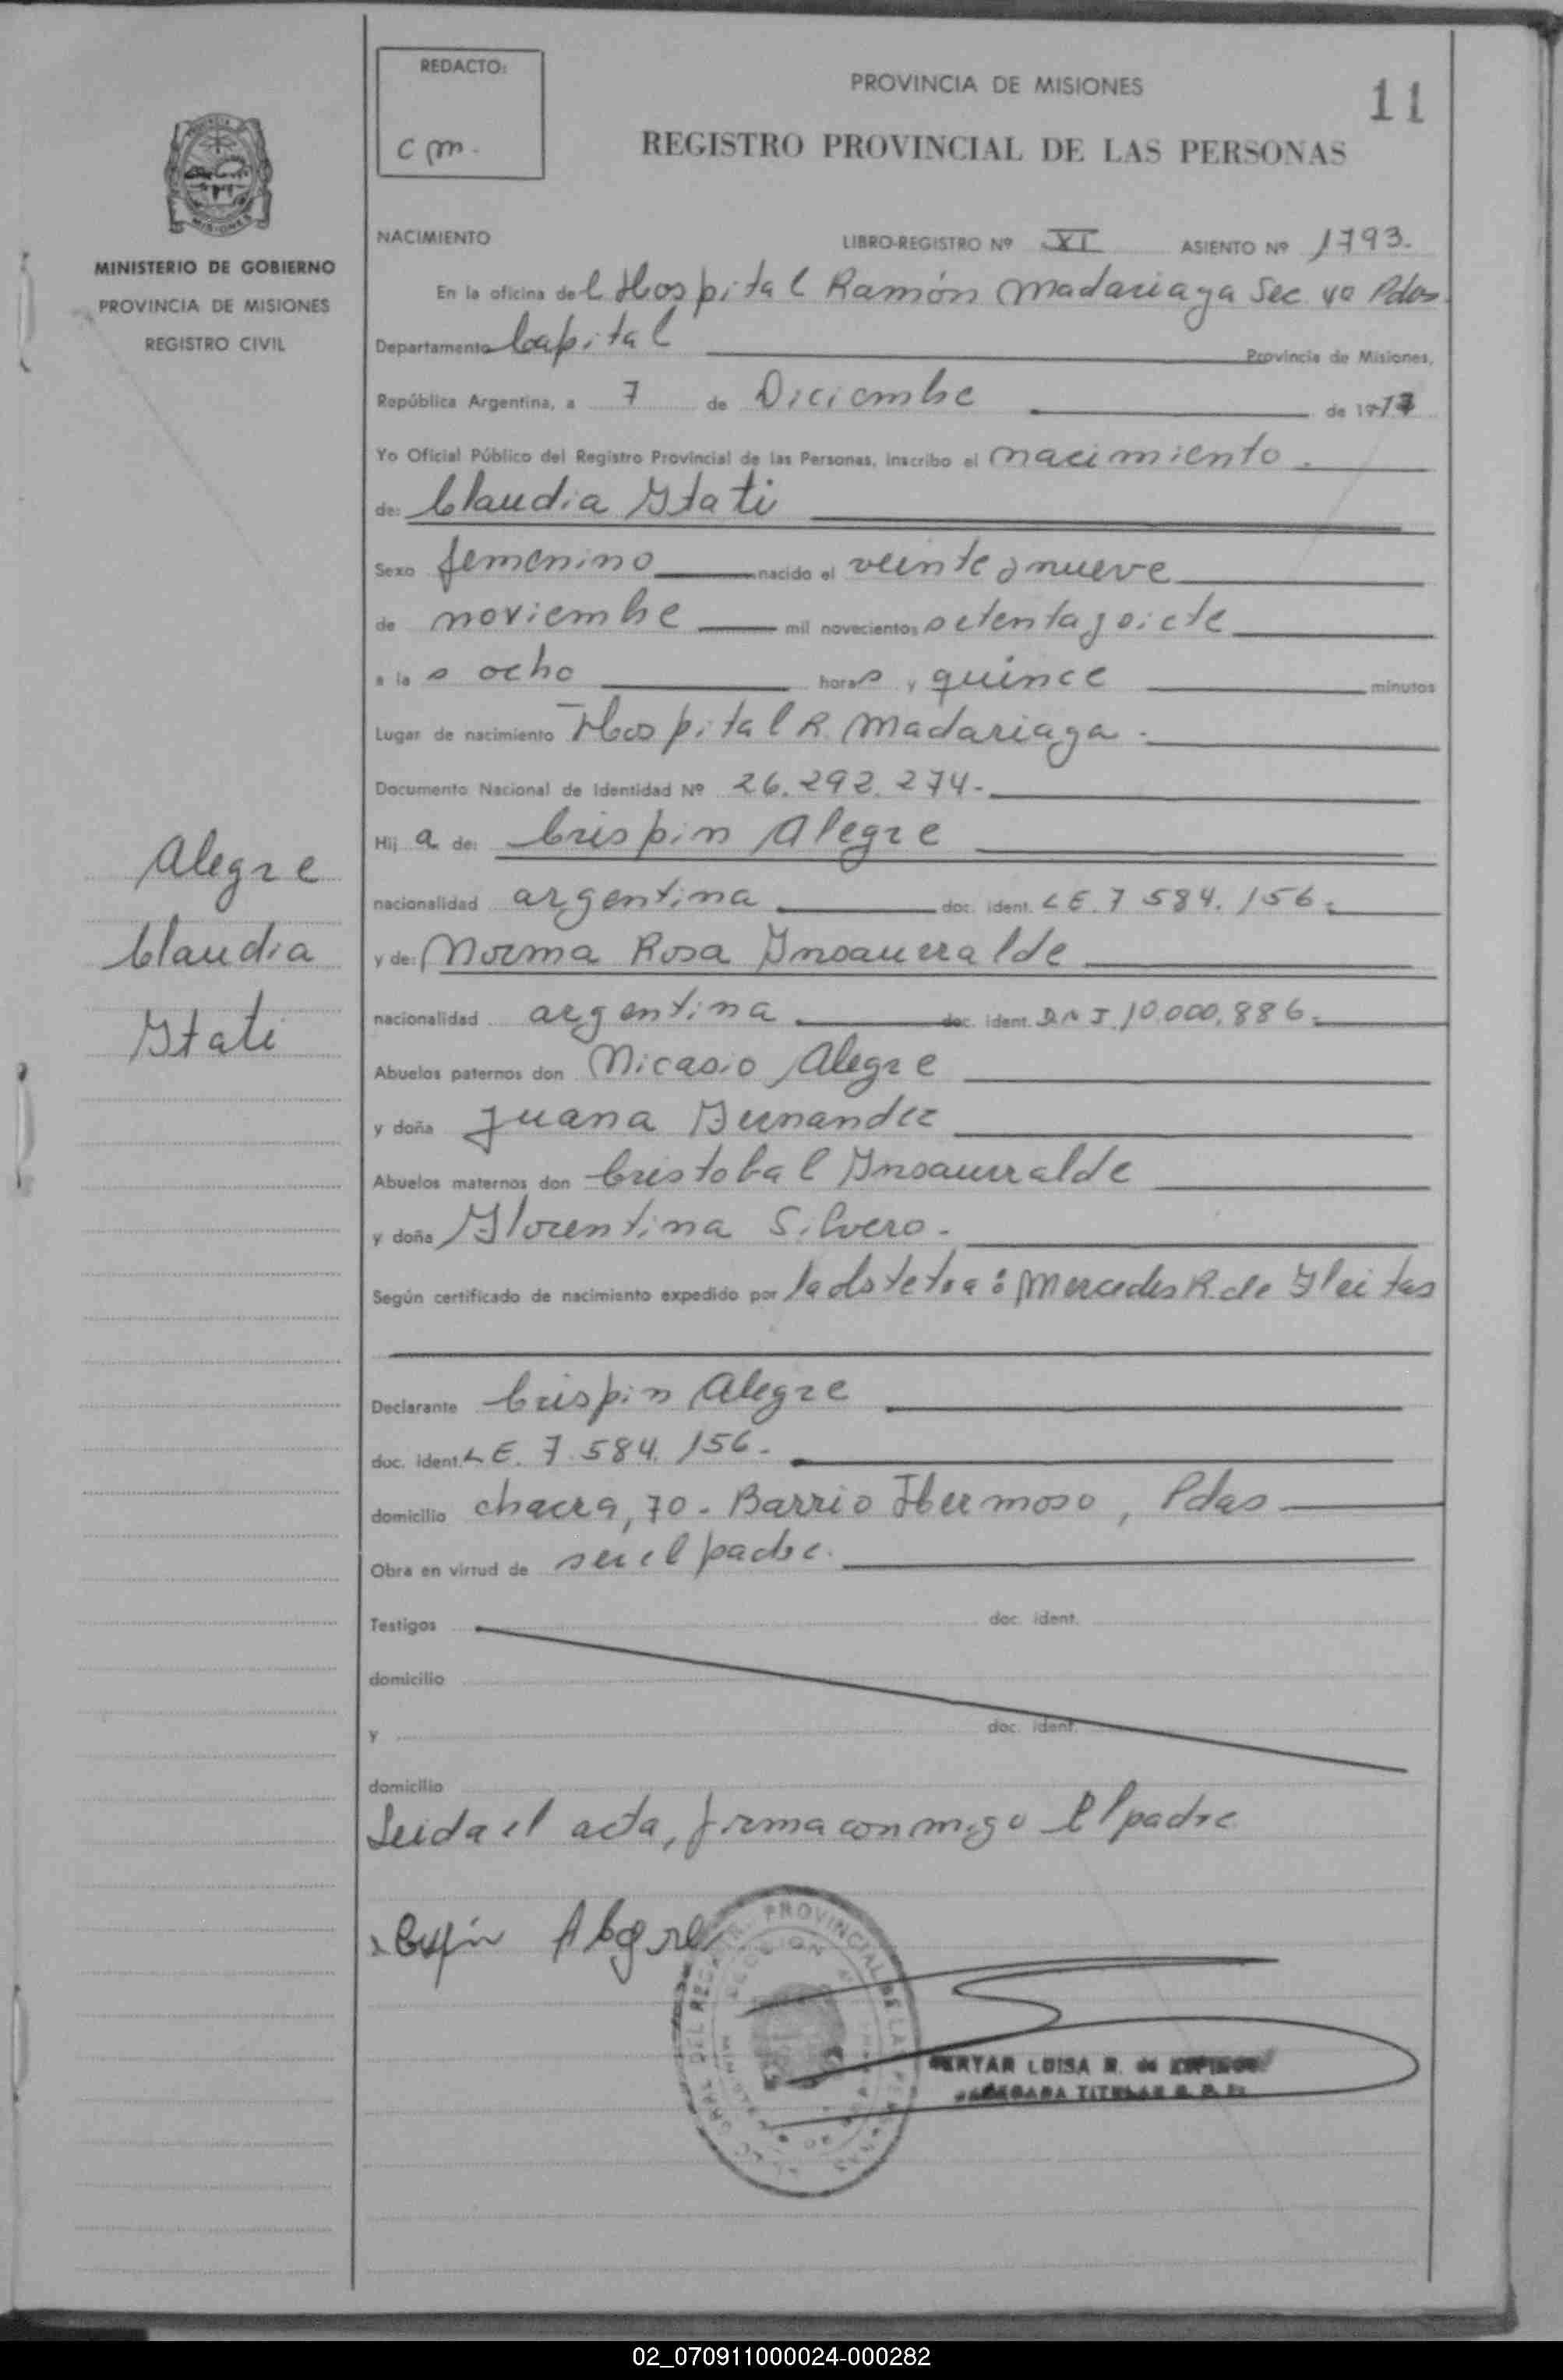 REDACTO:
cm.
PROVINCIA DE MISIONES
11
REGISTRO PROVINCIAL DE LAS PERSONAS
MINISTERIO DE GOBIERNO
PROVINCIA DE MISIONES
REGISTRO CIVIL
NACIMIENTO LIBRO-REGISTRO Nº XI ASIENTO Nº 1793.
En la oficina del Hospital Ramón Madariaga Sec 4a Pdas.
Departamento Capital Provincia de Misiones,
República Argentina, a 7 de Diciembre de 1977
Yo Oficial Público del Registro Provincial de las Personas, inscribo el nacimiento.
de: Claudia Itati
Sexo femenino nacido el veinte y nueve
de noviembre mil novecientos setenta y siete
a las ocho horas y quince minutos
Lugar de nacimiento Hospital R. Madariaga.
Documento Nacional de Identidad Nº 26.292.274.-
Hija de: Crispin Alegre
nacionalidad argentina doc. ident. LE. 7 584.156.
y de: Norma Rosa Insaurralde
nacionalidad argentina doc. ident. DNI 10.000.886.
Abuelos paternos don Nicasio Alegre
y doña Juana Fernandez
Abuelos maternos don Cristobal Insaurralde
y doña Florentina Silvero.
Según certificado de nacimiento expedido por la obstetra: Mercedes R. de Fleitas
Declarante Crispin Alegre
doc. ident. LE. 7.584.156.
domicilio chacra, 70 - Barrio Hermoso, Pdas
Obra en virtud de ser el padre.
Testigos doc. ident.
domicilio
y doc. ident.
domicilio
Leida el acta, firma conmigo el padre
Crispin Alegre
Alegre
Claudia
Itati
LUISA R. de
TITULAR
02_070911000024-000282